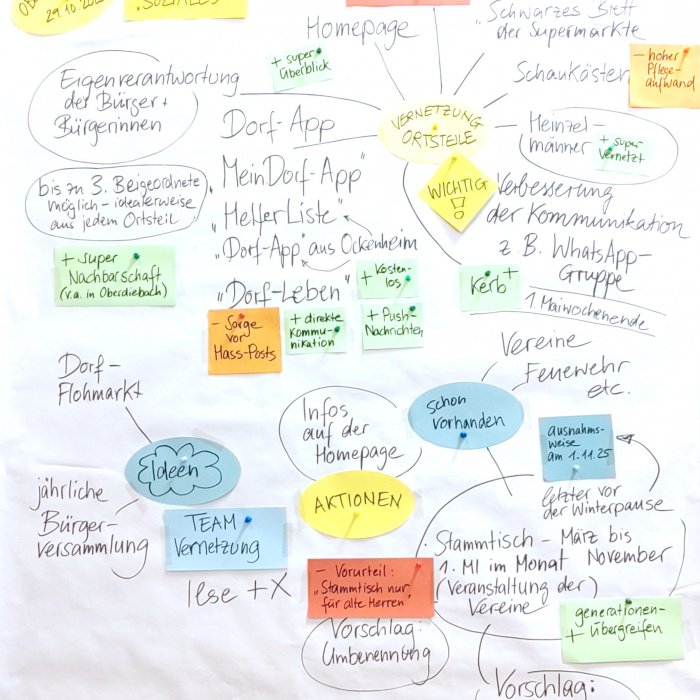 29.10.
SOZIALES
Homepage
„Schwarzes Brett
der Supermärkte
Schaukästen
- hoher
Pflege-
aufwand
+ super
Überblick
Eigenverantwortung
der Bürger +
Bürgerinnen
Dorf-App
VERNETZUNG
ORTSTEILE
Heinzel-
männer
+ super
vernetzt
bis zu 3. Beigeordnete
möglich - idealerweise
aus jedem Ortsteil
„MeinDorf-App"
„HelferListe"
„Dorf-App" aus Ockenheim
„Dorf-Leben"
WICHTIG
!
Verbesserung
der Kommunikation
z B. WhatsApp-
Gruppe
+ super
Nachbarschaft
(v.a. in Oberdiebach)
+ Kosten-
los
Kerb +
1 Maiwochenende
- Sorge
vor
Hass-Posts
+ direkte
Kommu-
nikation
+ Push-
Nachrichten
Vereine
Feuerwehr
etc.
Dorf-
Flohmarkt
Infos
auf der
Homepage
schon
vorhanden
ausnahms-
weise
am 1.11.25
Ideen
AKTIONEN
letzter vor
der Winterpause
jährliche
Bürger-
versammlung
TEAM
Vernetzung
lese + X
- Vorurteil:
„Stammtisch nur
für alte Herren"
Vorschlag:
Umbenennung
· Stammtisch - März bis
1. MI im Monat November
(Veranstaltung der)
Vereine
generationen-
+ übergreifen
Vorschlag: